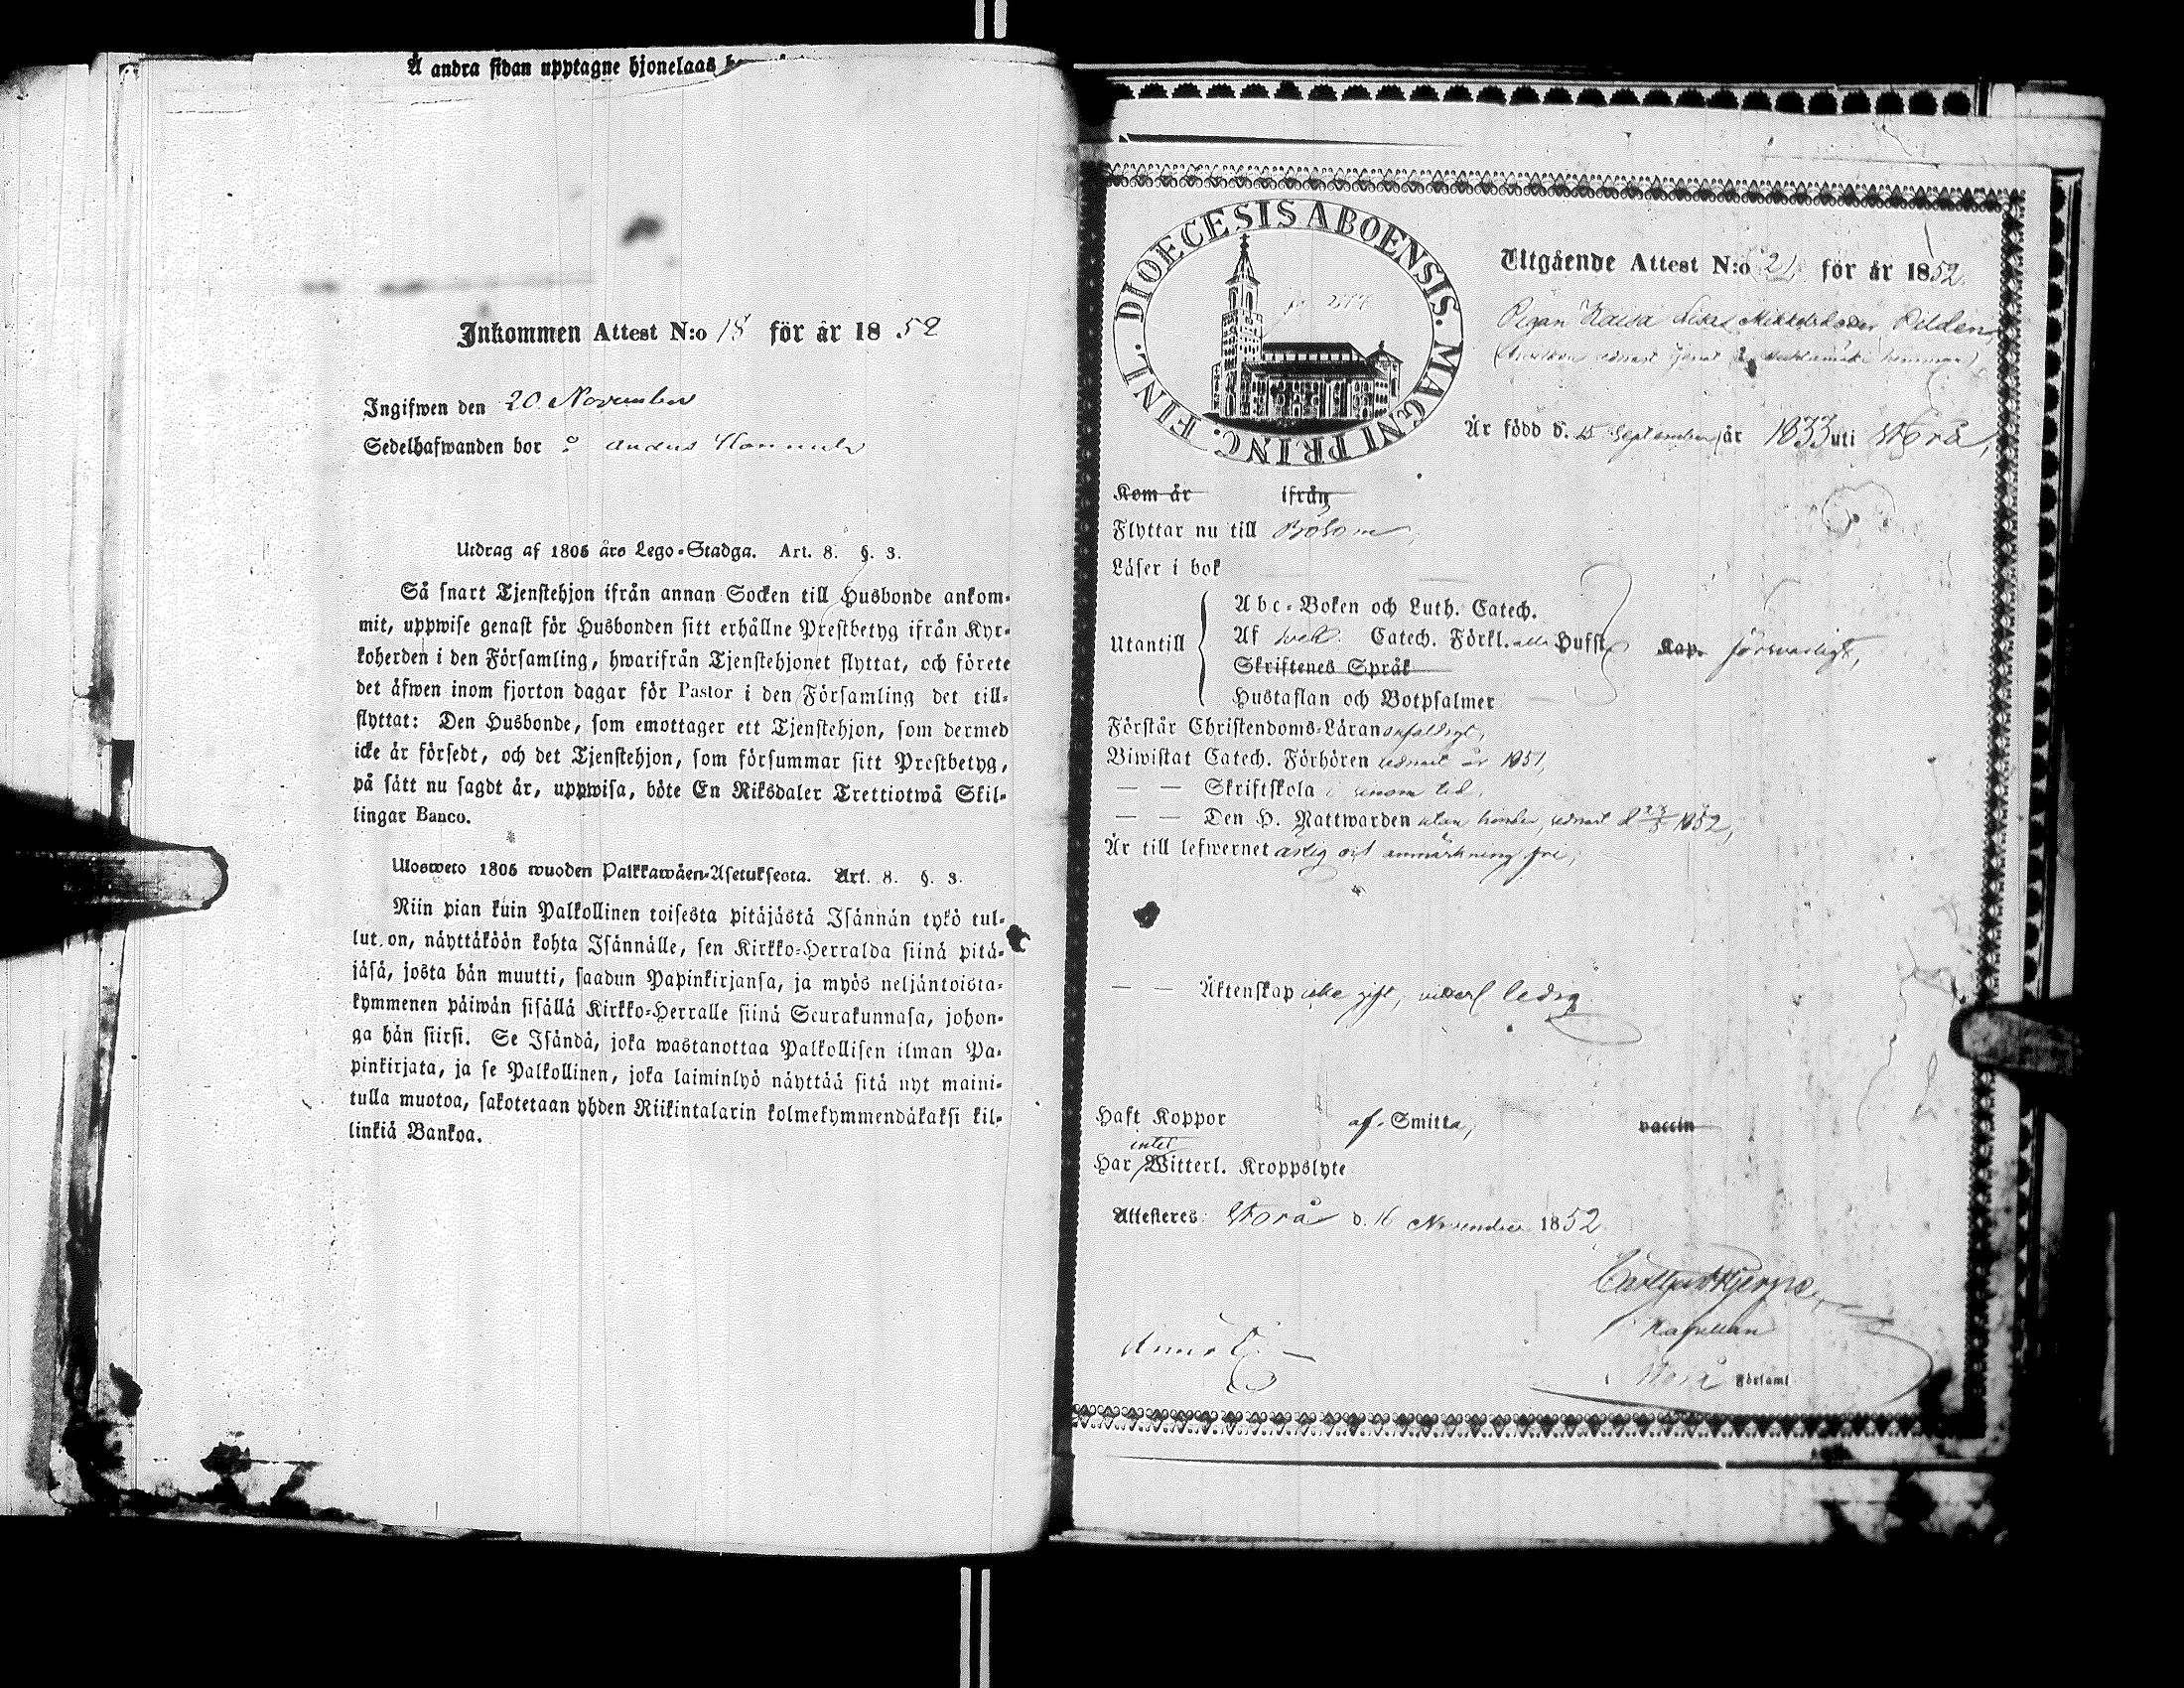 Å andra sidan upptagne hjonelaas
Inkommen Attest N:o 18 för år 1852
Ingifwen den 20 November
Sedelhafwanden bor å
Utdrag af 1805 års Lego-Stadga. Art. 8. §. 3.
Så snart Tjenstehjon ifrån annan Socken till Husbonde ankom-
mit, uppwise genast för Husbonden sitt erhållne Prestbetyg ifrån Kyr-
koherden i den Församling, hwarifrån Tjenstehjonet flyttat, och förete
det äfwen inom fjorton dagar för Pastor i den Församling det till-
flyttat: Den Husbonde, som emottager ett Tjenstehjon, som dermed
icke är försedt, och det Tjenstehjon, som försummar sitt Prestbetyg,
på sätt nu sagdt är, uppwisa, böte En Riksdaler Trettiotwå Skil-
lingar Banco.
Ulosweto 1805 wuoden Palkkawäen-Asetuksesta. Art. 8. §. 3.
Niin pian kuin Palkollinen toisesta pitäjästä Isännän tykö tul-
lut on, näyttäköön kohta Isännälle, sen Kirkko-Herralda siinä pitä-
jäsä, josta hän muutti, saadun Papinkirjansa, ja myös neljäntoista-
kymmenen päiwän sisällä Kirkko-Herralle siinä Seurakunnasa, johon-
ga hän siirsi. Se Isändä, joka wastanottaa Palkollisen ilman Pa-
pinkirjata, ja se Palkollinen, joka laiminlyö näyttää sitä nyt maini-
tulla muotoa, sakotetaan yhden Riikintalarin kolmekymmendäkaksi kil-
linkiä Bankoa.
DIOECESIS ABOENSIS. MAGNI PRINC. FINL.
Utgående Attest N:o 21 för år 1852.
Pigan Kaisa
Är född d. 15 September år 1833 uti Storå,
Kom år ifrån
Flyttar nu till
Läser i bok
Utantill
Abc-Boken och Luth. Catech.
Af Catech. Förkl. alla Hufst
Skriftenes Språk
Hustaflan och Botpsalmer
Kap. försvarligt,
Förstår Christendoms-Läran enfaldigt,
Biwistat Catech. Förhören sednast år 1851,
— — Skriftskola i sinom tid,
— — Den H. Nattwarden utan hinder, sednast d 1852,
Är till lefwernet ärlig och anmärkning fri,
— — Äktenskap icke gift, ledig
Haft Koppor af Smitta, vaccin
intet
Har Witterl. Kroppslyte
Attesteres Storå d. 16 November 1852
Kapellan
i Storå Församl